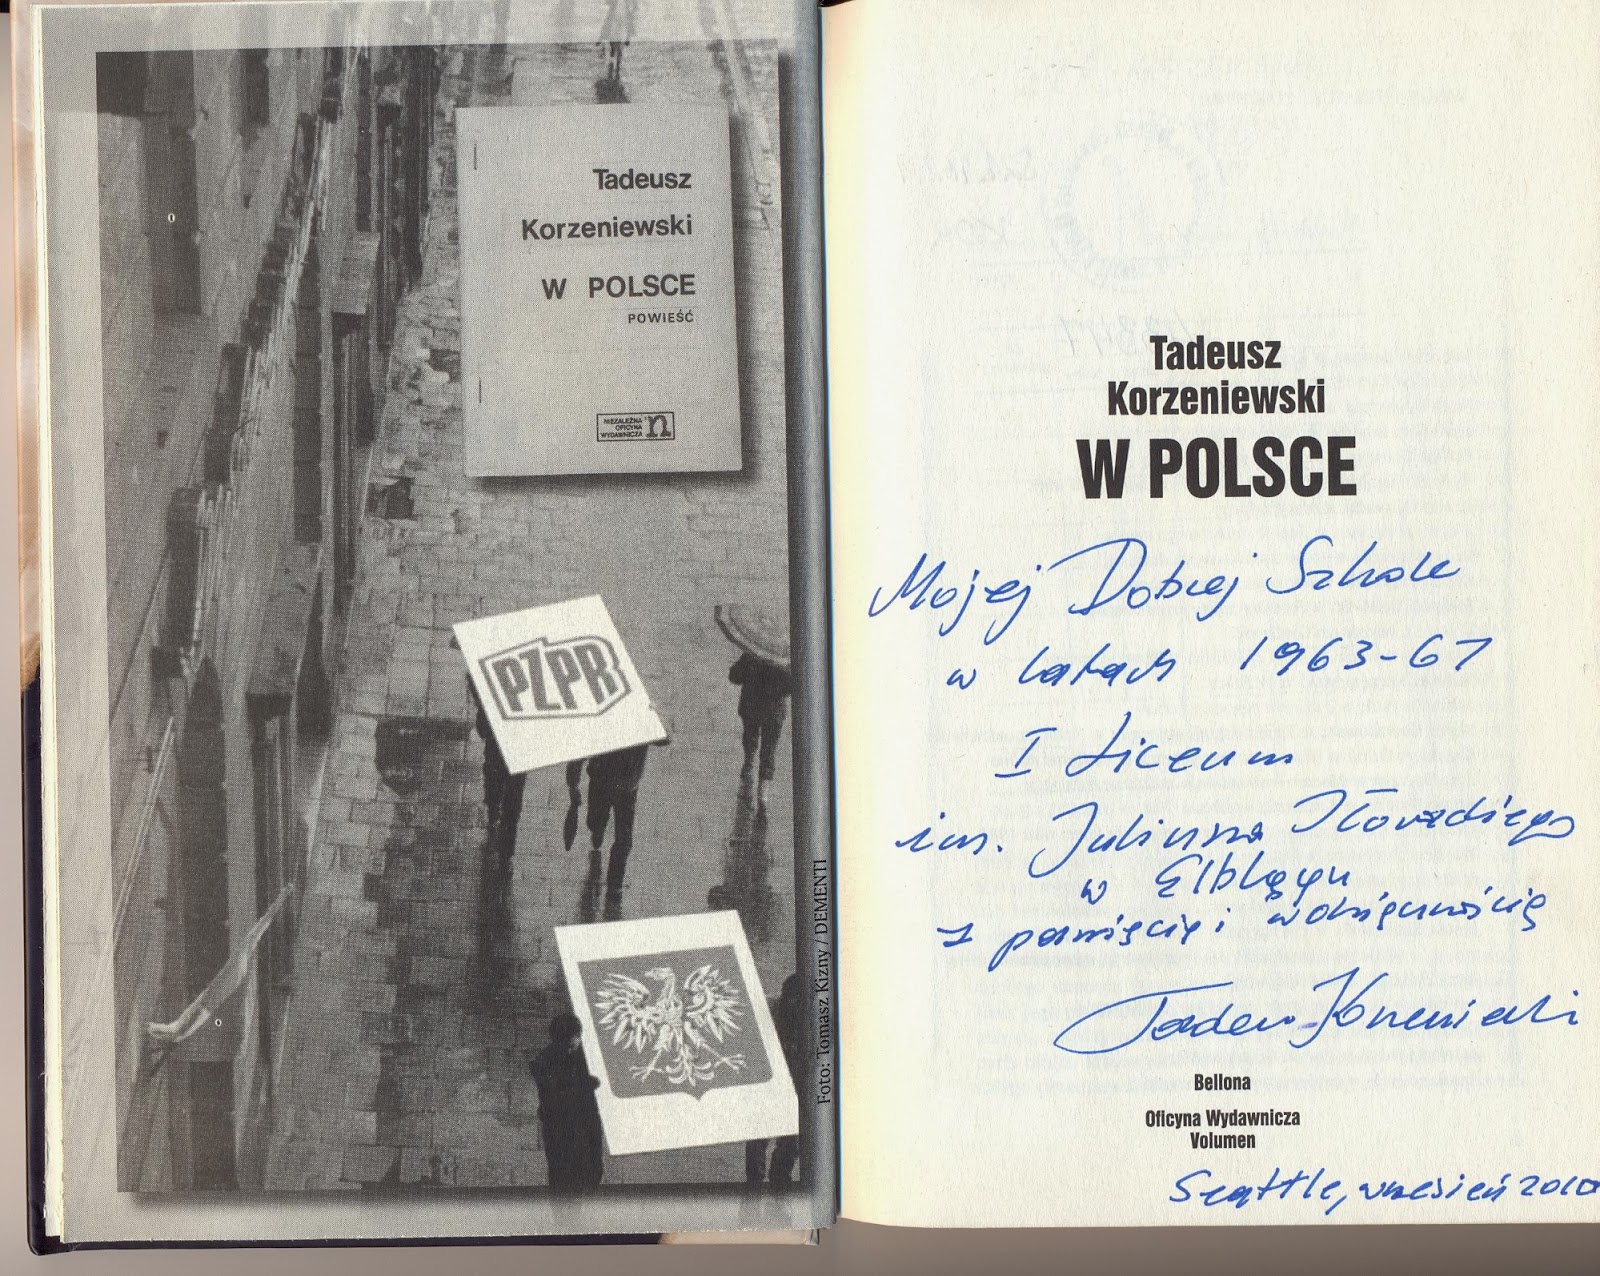 Tadeusz
Korzeniewski
W POLSCE
POWIEŚĆ
NIEZALEŻNA
OFICYNA
WYDAWNICZA
n
PZPR
Foto: Tomasz Kizny / DEMENTI
Tadeusz
Korzeniewski
W POLSCE
Mojej Dobrej Szkole
w latach 1963-67
I Liceum
im. Juliusza Słowackiego
w Elblągu
z pamięcią i wdzięcznością
Tadeusz Korzeniewski
Bellona
Oficyna Wydawnicza
Volumen
Seattle, wrzesień 2010